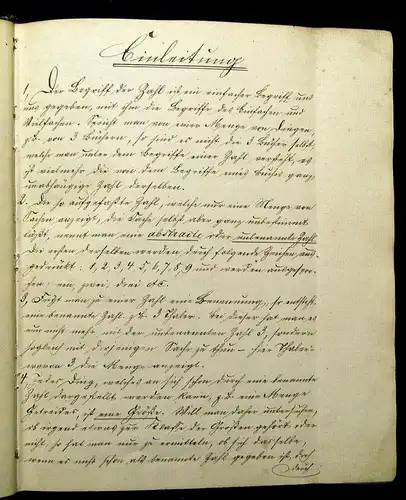 Einleitung
1, Der Begriff der Zahl ist ein einfacher Begriff und
uns gegeben, mit ihm die Begriffe des Einfachen und
Vielfachen. Spricht man von einer Menge von Dingen,
z.B. von 3 Büchern, so sind es nicht die 3 Bücher selbst,
welche man unter dem Begriffe einer Zahl versteht, es
ist vielmehr die von dem Begriffe eines Buches ganz
unabhängige Zahl derselben.
2. Die so aufgefaßte Zahl, welche nur eine Menge von
Sachen anzeigt, die Sache selbst aber ganz unbestimmt
läßt, nennt man eine abstracte oder unbenannte Zahl.
Die ersten derselben werden durch folgende Zeichen aus-
gedrückt: 1, 2, 3, 4, 5, 6, 7, 8, 9 und werden ausgespro-
chen: ein, zwei, drei etc.
3, Fügt man zu einer Zahl eine Benennung, so entsteht
eine benannte Zahl z.B. 3 Thaler. Bei dieser hat man es
nun nicht mehr mit der unbenannten Zahl 3, sondern
sogleich mit derjenigen Sache zu thun – hier Thaler –
wovon 3 die Menge anzeigt.
4. Jedes Ding, welches an sich schon durch eine benannte
Zahl dargestellt werden kann, z.B. eine Menge
Getreides, ist eine Größe. Will man daher untersuchen,
ob irgend etwas zur Klasse der Größen gehört oder
nicht, so hat man nur zu ermitteln, ob sich dasselbe,
wenn es nicht schon als benannte Zahl gegeben ist, doch
durch